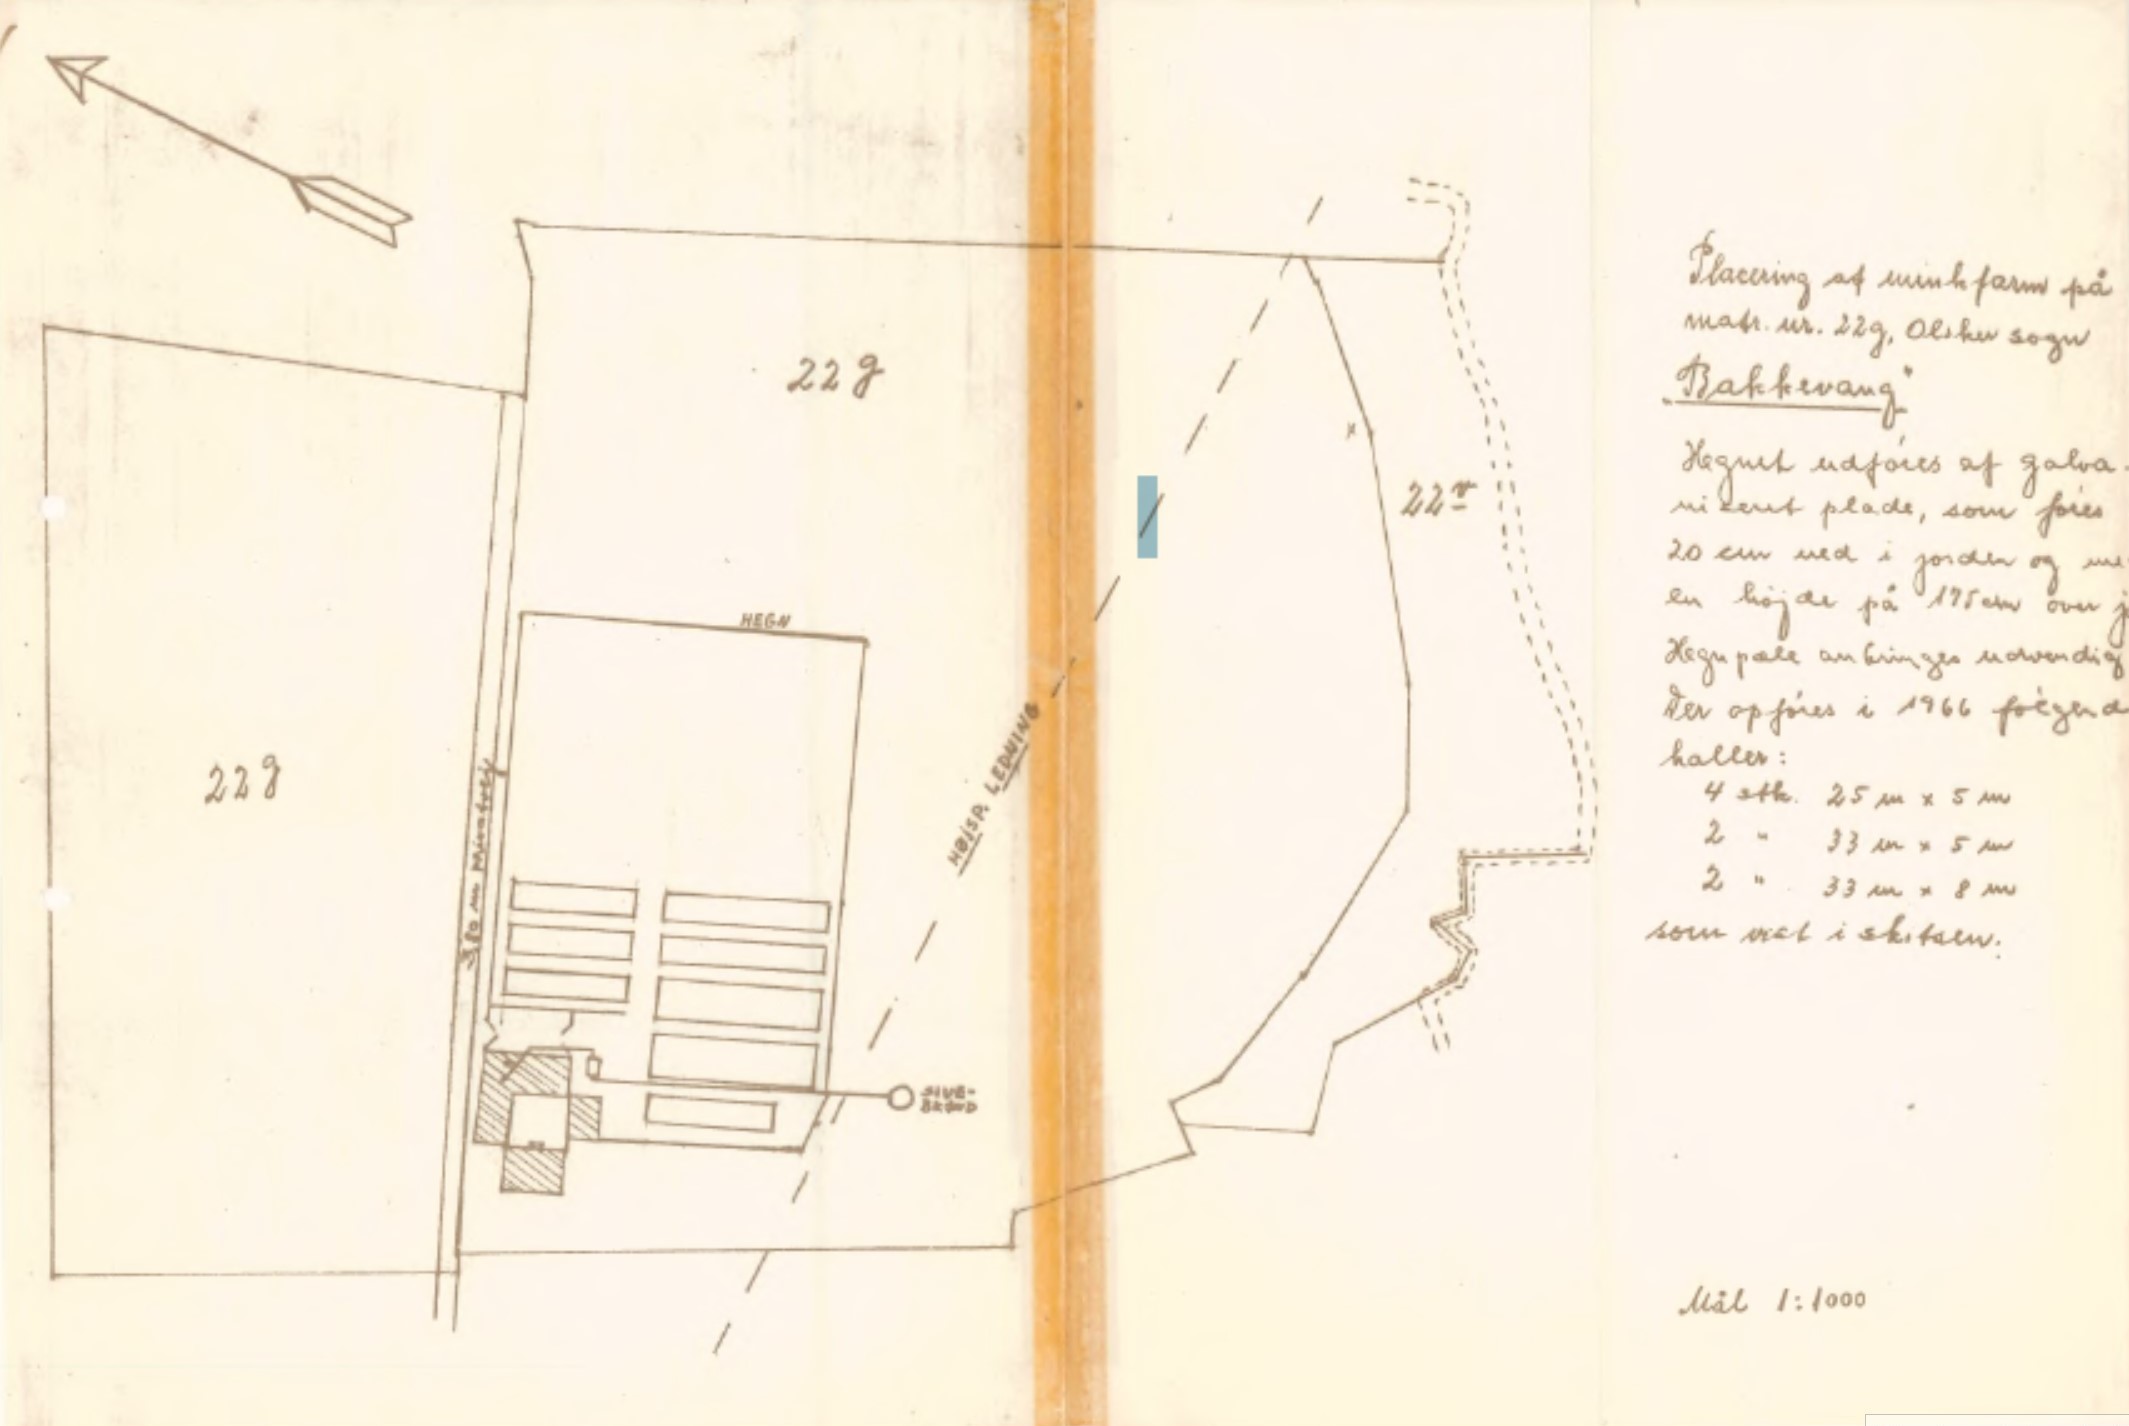 22g
22g
22v
HEGN
HØJSP. LEDNING
3,80 m privatvej
SIVE-
BRØND
Placering af minkfarm på
matr. nr. 22g, Olsker sogn
"Bakkevang"
Hegnet udføres af galva-
niseret plade, som føres
20 cm ned i jorden og me
en højde på 175 cm over j
Hegnpæle anbringes udvendig
Der opføres i 1966 følgend
haller:
4 stk. 25 m x 5 m
2 " 33 m x 5 m
2 " 33 m x 8 m
som vist i skitsen.
Mål 1:1000